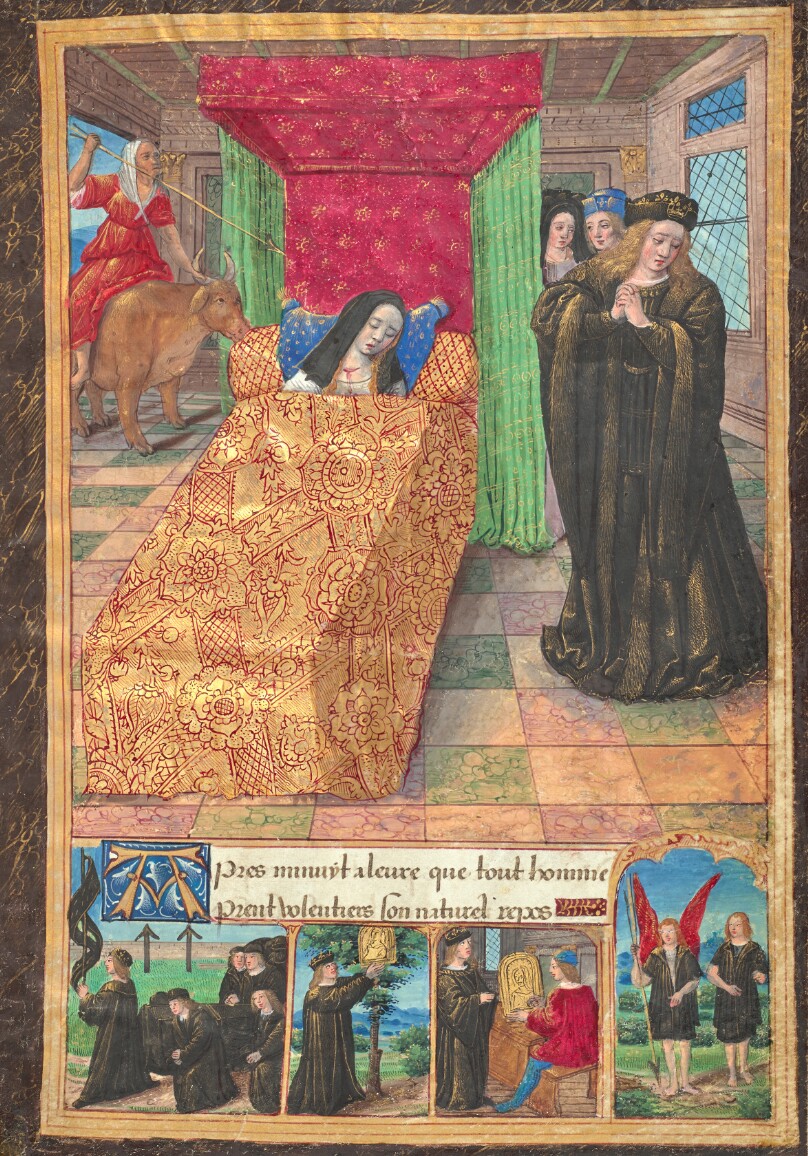 Apres minuyt a leure que tout homme
Prent volentiers son naturel repos